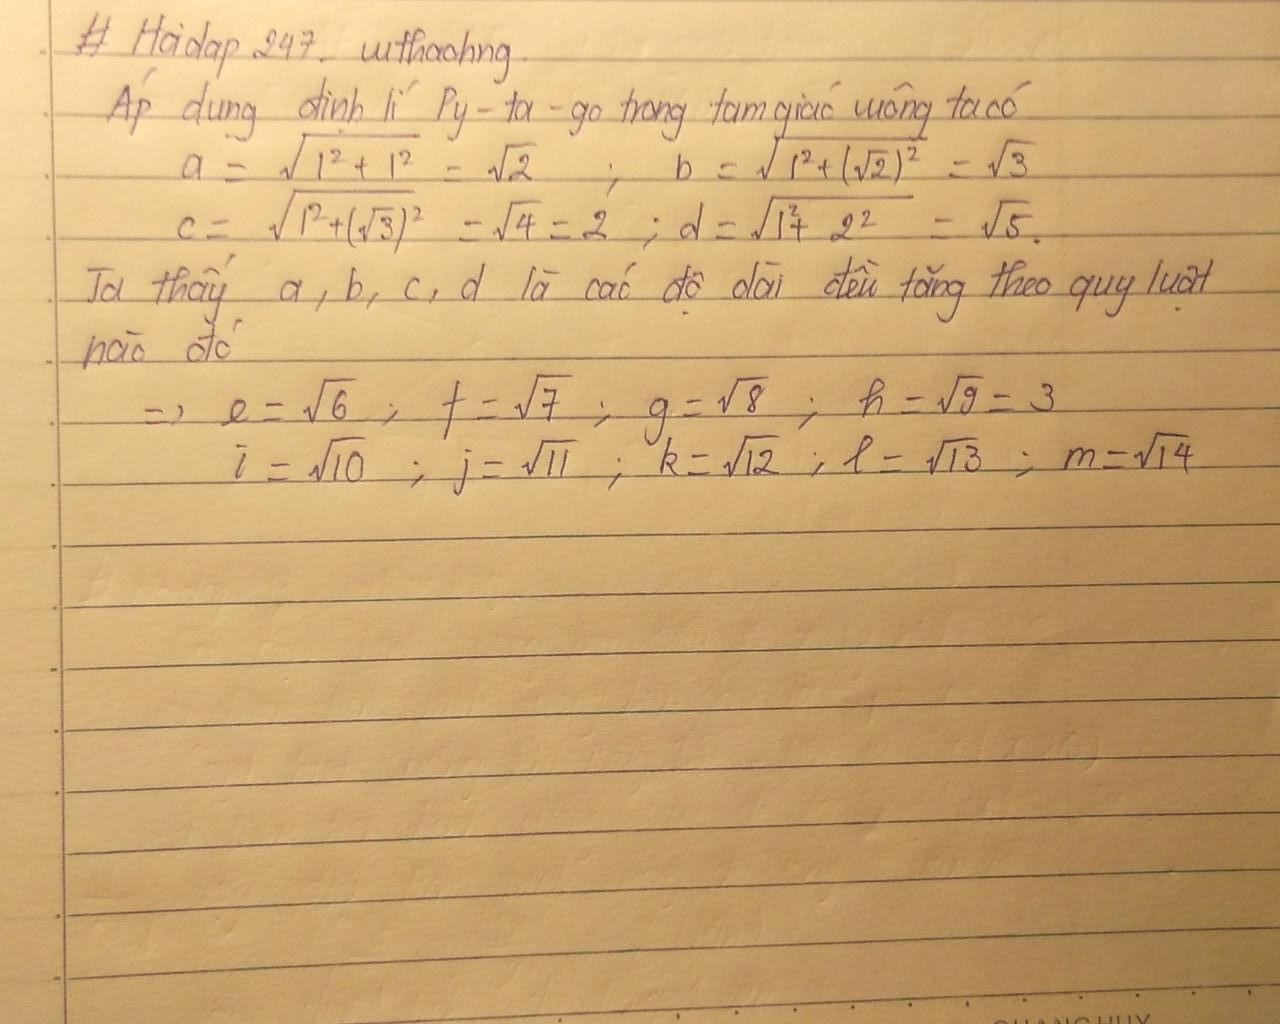 # Hoidap 247. wthaohng.
Áp dụng định lí Py-ta-go trong tam giác vuông ta có
a = √(1² + 1²) = √2 ; b = √(1² + (√2)²) = √3
c = √(1² + (√3)²) = √4 = 2 ; d = √(1² + 2²) = √5.
Ta thấy a, b, c, d là các độ dài đều tăng theo quy luật
nào đó
=> e = √6 ; f = √7 ; g = √8 ; h = √9 = 3
i = √10 ; j = √11 ; k = √12 ; l = √13 ; m = √14